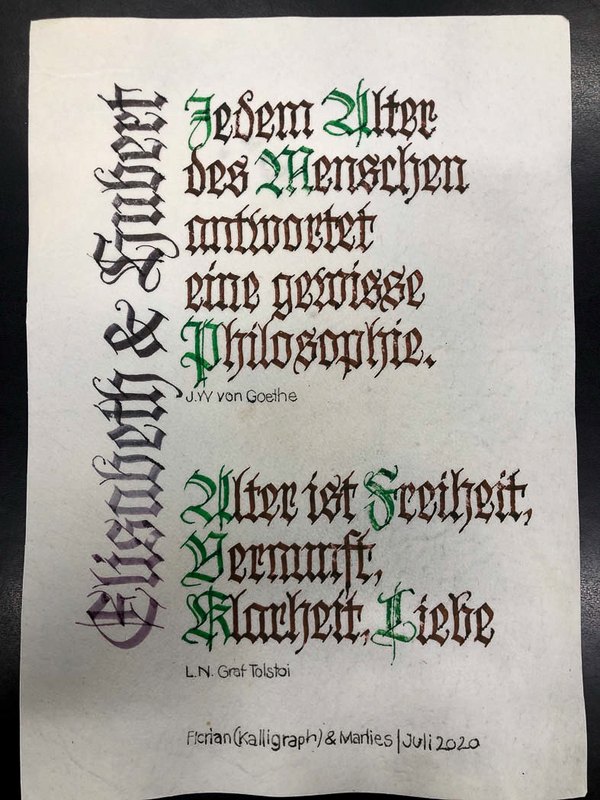 Elisabeth & Hubert
Jedem Alter
des Menschen
antwortet
eine gewisse
Philosophie.
J.W von Goethe
Alter ist Freiheit,
Vernunft,
Klarheit, Liebe
L.N. Graf Tolstoi
Florian (Kalligraph) & Marlies | Juli 2020